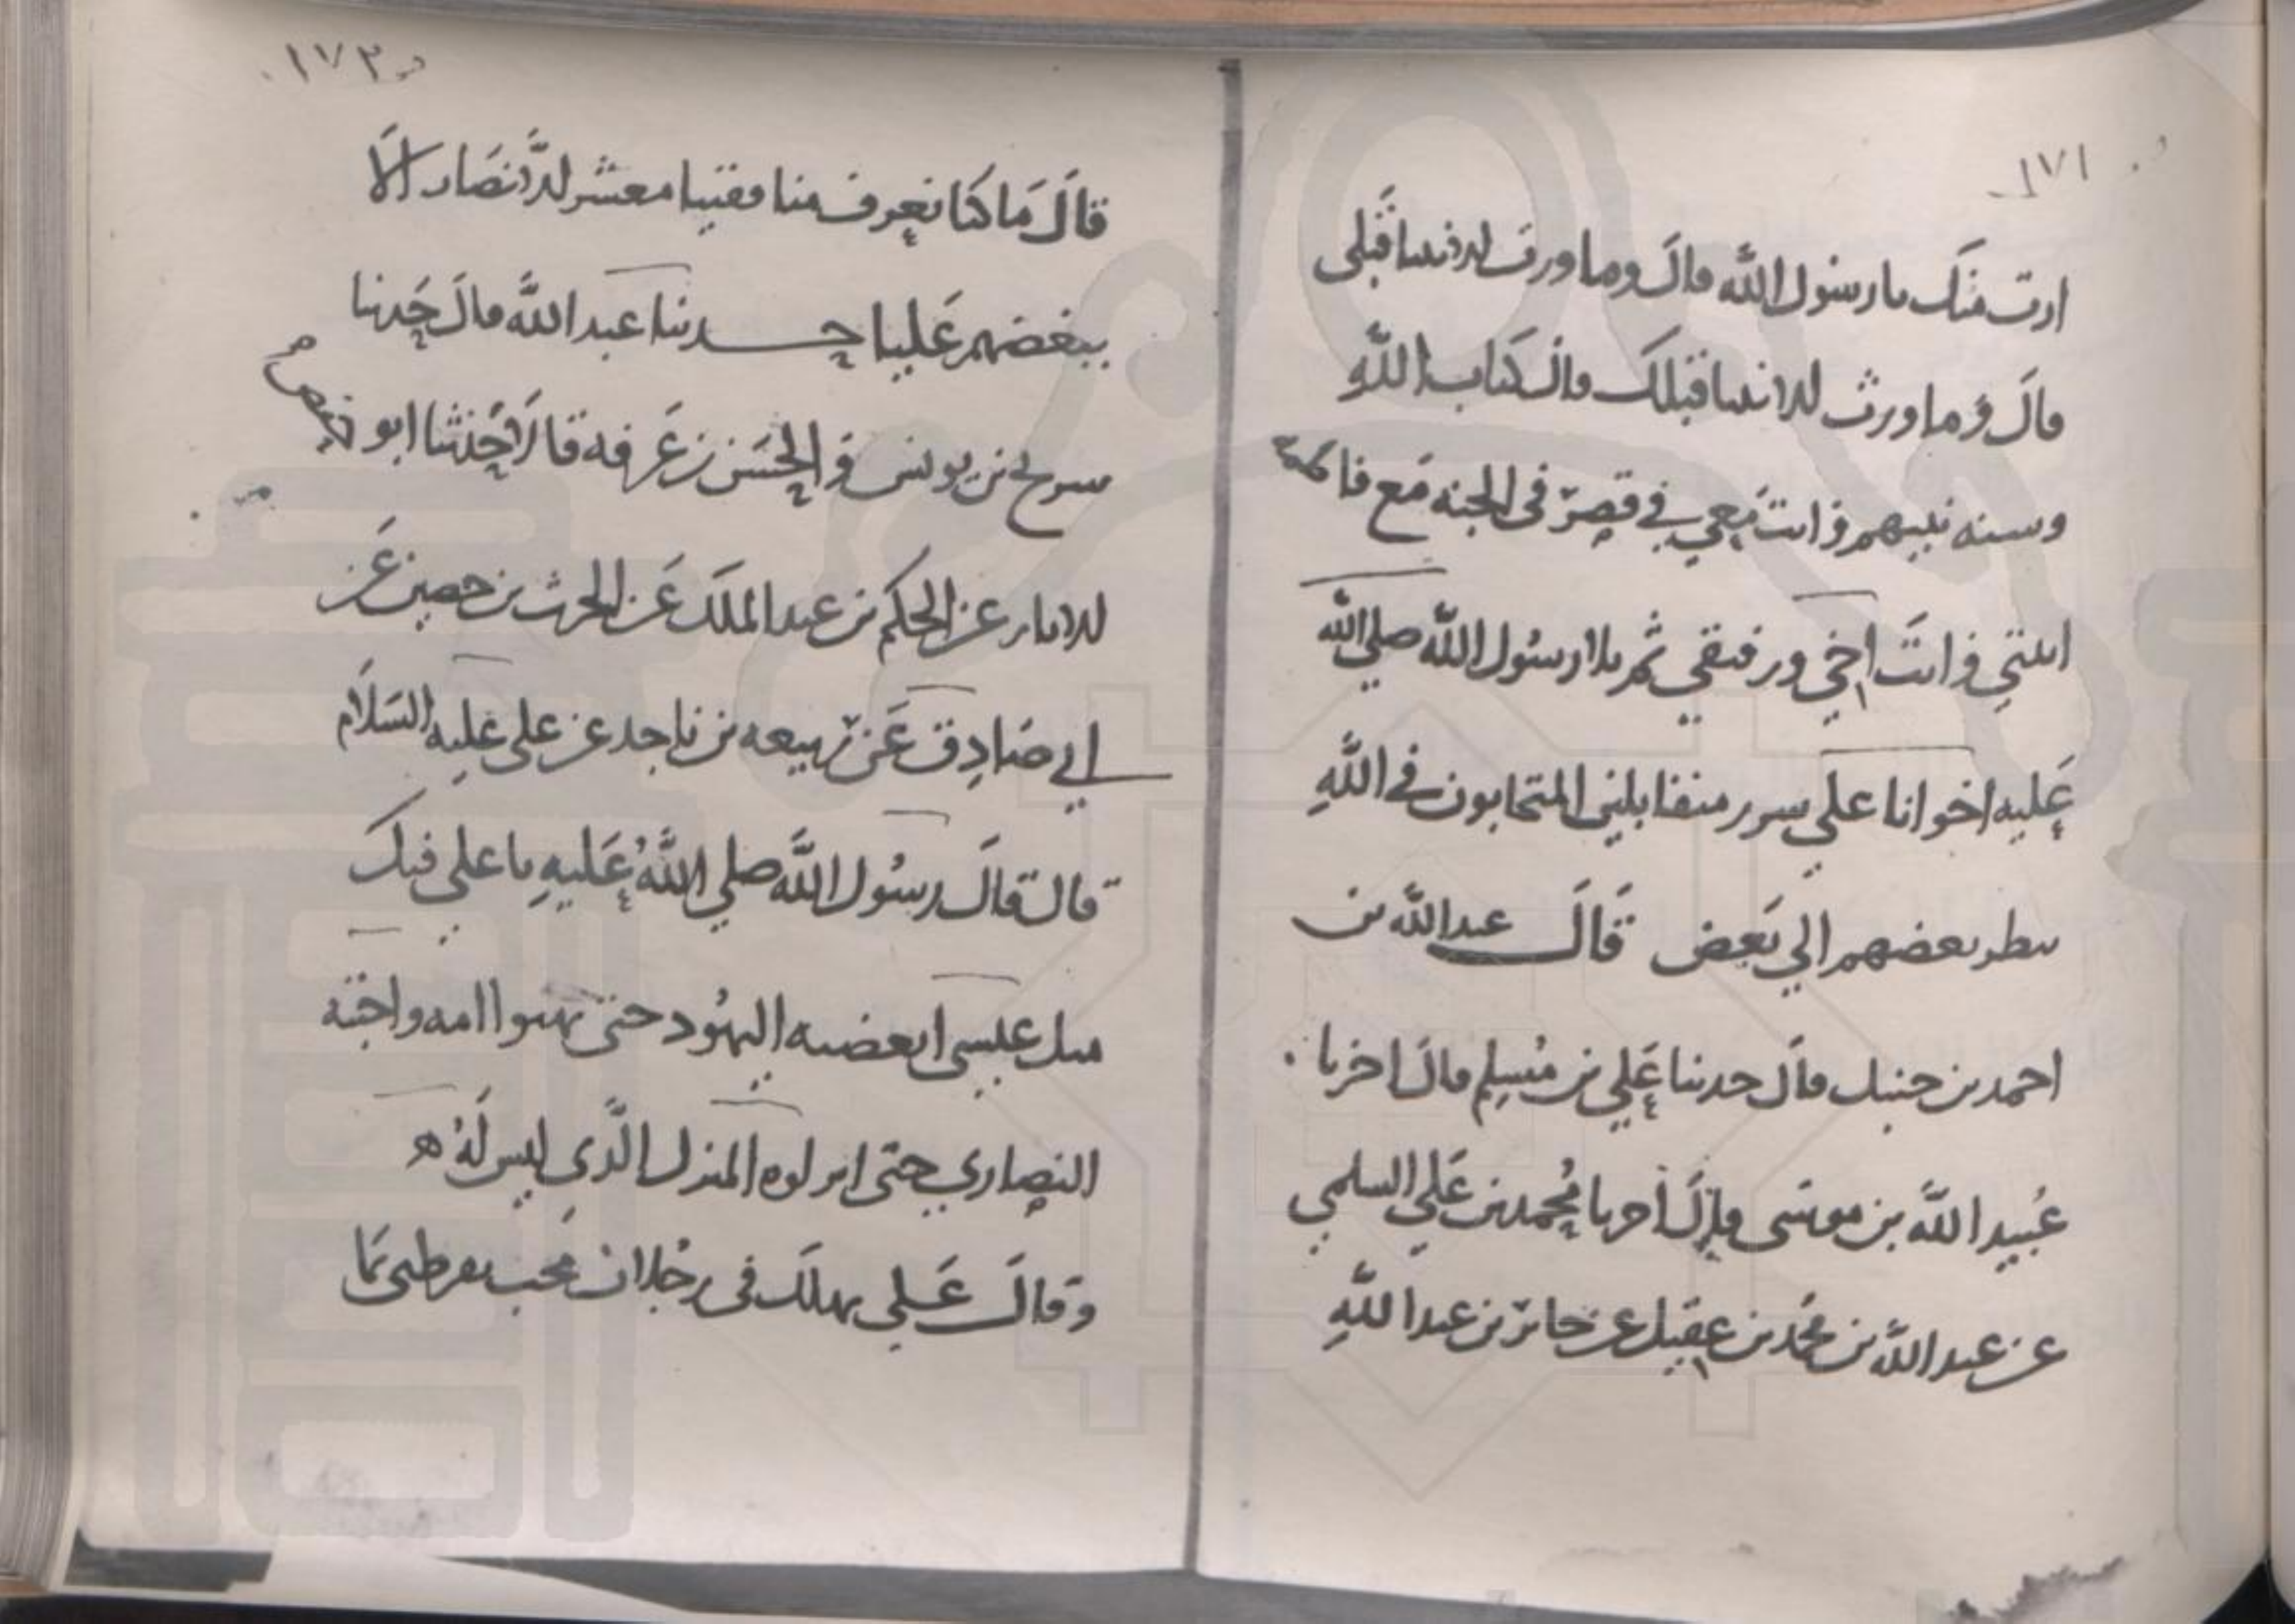 ١٧١
ارث منك يا رسول الله قال وما ورث الانبيا قبلي
قال وما ورث الانبيا قبلك قال كتاب الله
وسنه نبيهم وانت معي في قصري في الجنه مع فاطمة
ابنتي وانت اخي ورفيقي ثم تلا رسول الله صلى الله
عليه اخوانا علي سرر متقابلين المتحابون في الله
ينظر بعضهم الي بعض قال عبد الله بن
احمد بن حنبل قال حدثنا علي بن مسلم قال اخبرنا
عبيد الله بن موسى قال اخبرنا محمد بن علي السلمي
عن عبد الله بن محمد بن عقيل عن جابر بن عبد الله
١٧٢
قال ما كنا نعرف منافقينا معشر الانصار الا
ببغضهم عليا حدثنا عبد الله قال حدثنا
سريج بن يونس و الحسن بن عرفه قالا حدثنا ابو حفص
الابار عن الحكم بن عبد الملك عن الحرث بن حصين عن
ابي صادق عن ربيعه بن ناجد عن علي عليه السلام
قال قال رسول الله صلي الله عليه يا علي فيك
مثل عيسى ابغضته اليهود حتى بهتوا امه واحبته
النصاري حتى انزلوه المنزل الذي ليس له ه
وقال علي يهلك في رجلان محب يفرطني بما